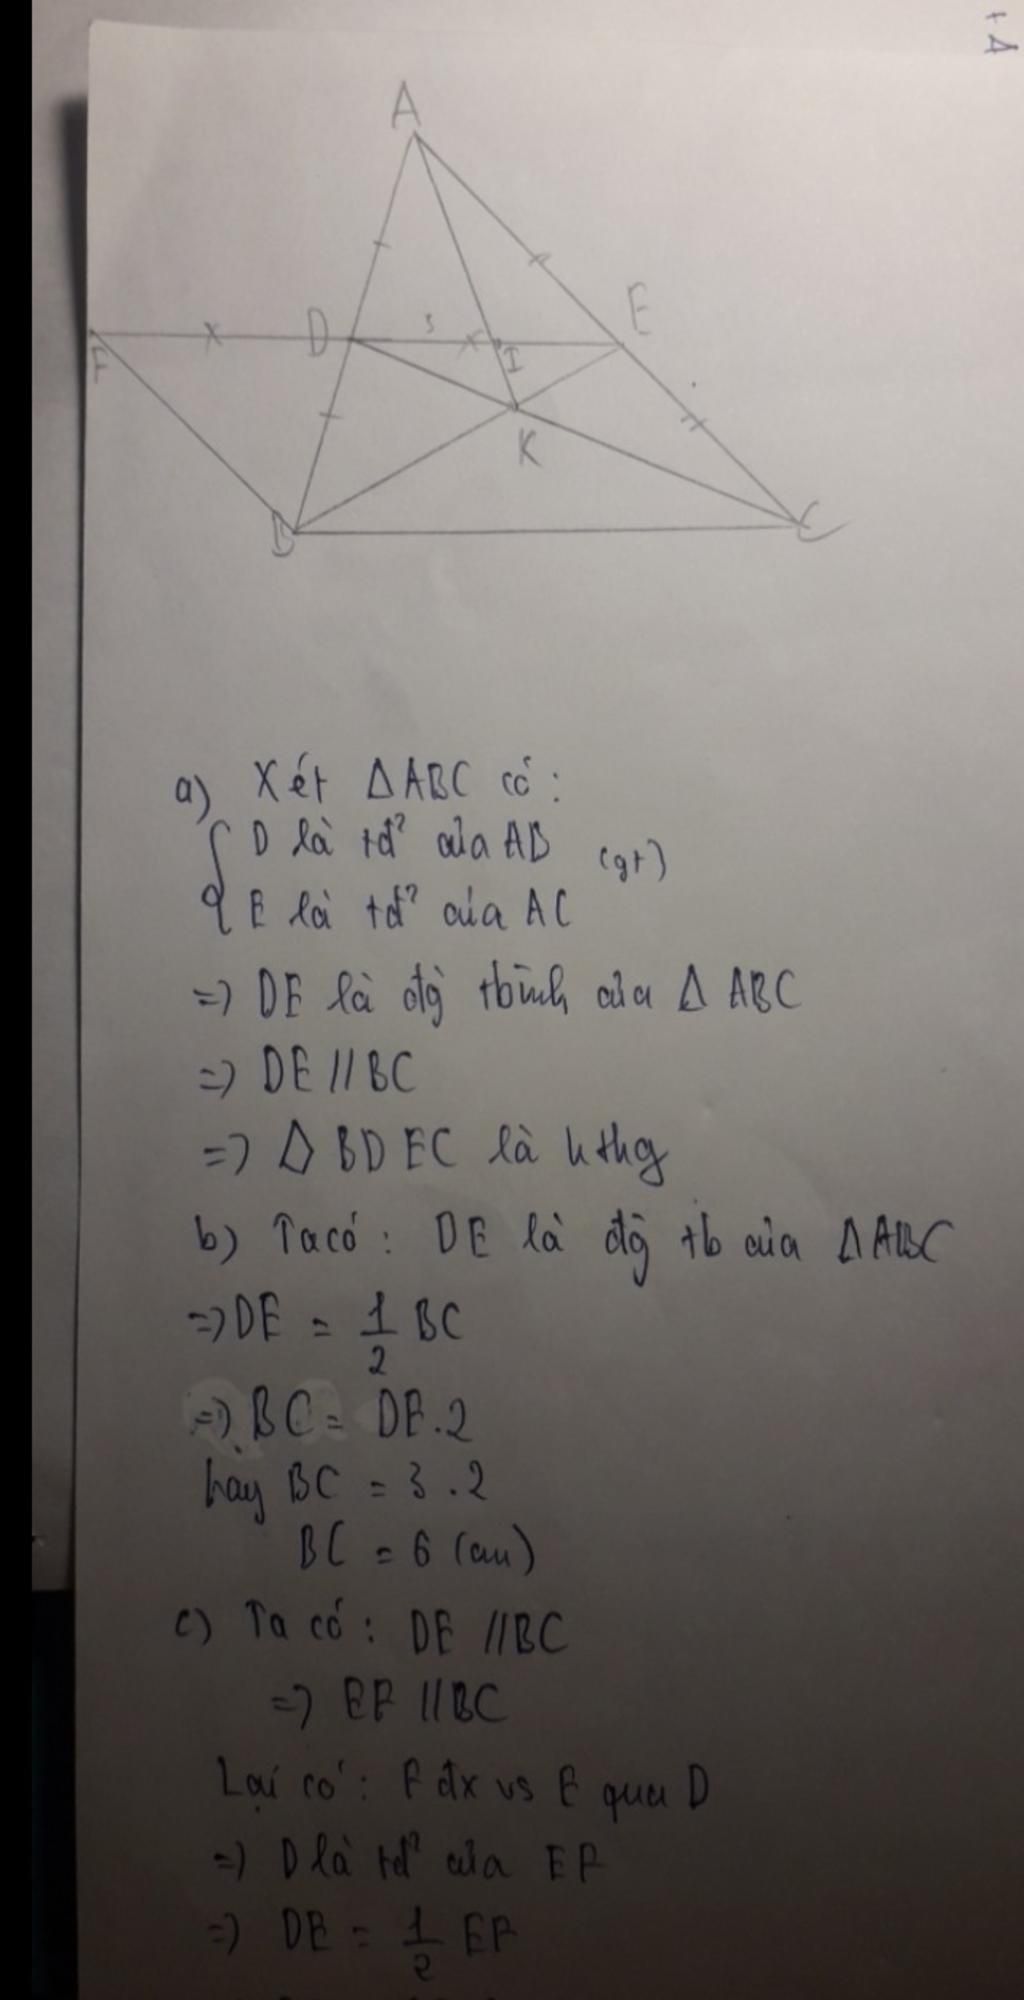 A
F
D
3
I
E
K
B
C
a) Xét ΔABC có:
D là tđ² của AB (gt)
E là tđ² của AC
=> DE là đg̀ tbình của Δ ABC
=> DE // BC
=> BDEC là hthg
b) Ta có: DE là đg̀ tb của ΔABC
=> DE = 1/2 BC
=> BC = DE.2
hay BC = 3.2
BC = 6 (cm)
c) Ta có: DE // BC
=> EF // BC
Lại có: F đx vs E qua D
=> D là tđ² của EF
=> DE = 1/2 EF